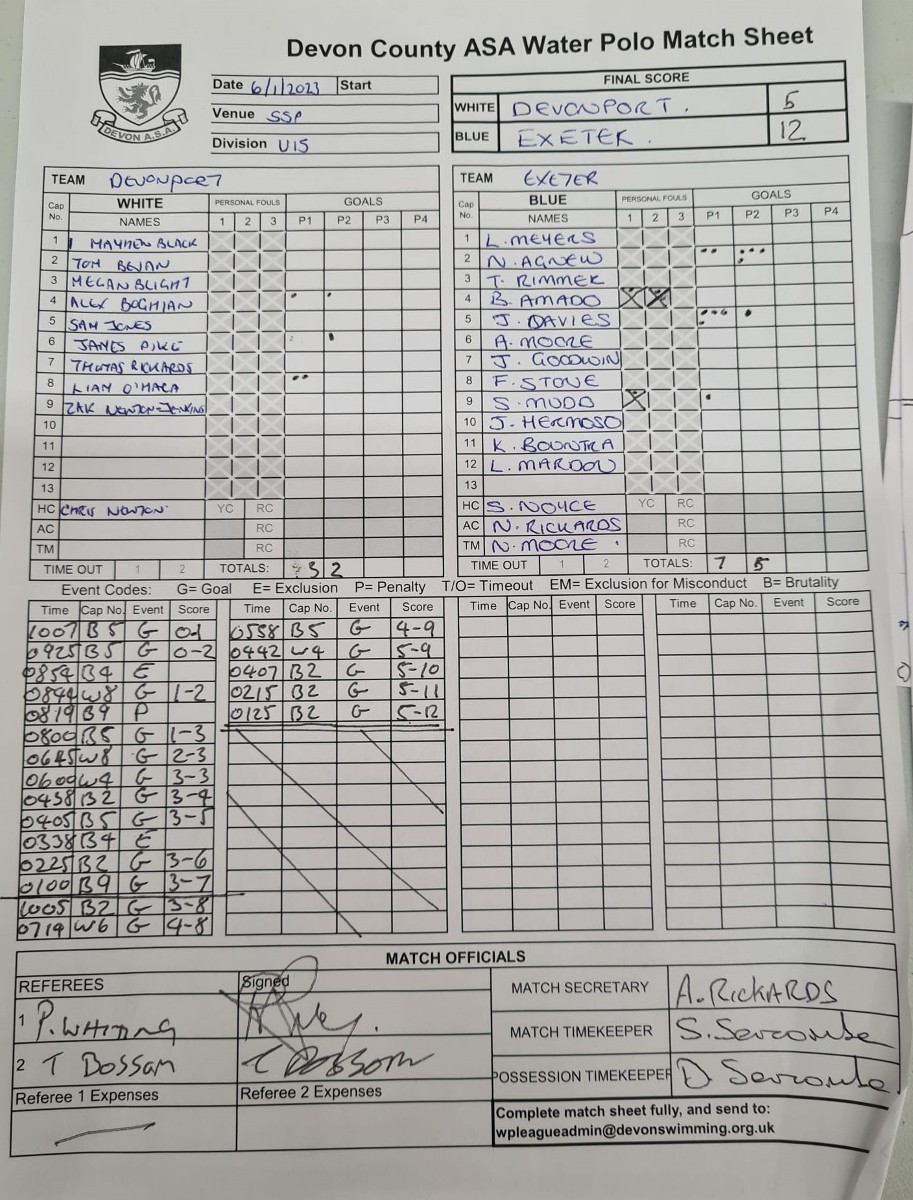 Devon County ASA Water Polo Match Sheet
DEVON A.S.A.
Date 6/1/2023 Start
Venue SSP
Division U15
FINAL SCORE
WHITE DEVONPORT. 5
BLUE EXETER. 12
TEAM DEVONPORT
Cap No. WHITE NAMES PERSONAL FOULS 1 2 3 GOALS P1 P2 P3 P4
1 MAYHEN BLACK
2 TOM BEVAN
3 MEGAN BLIGHT
4 ALEX BOGHIAN
5 SAM JONES
6 JAMES PIKE
7 THOMAS RICKARDS
8 LIAM O'MARA
9 ZAK NEWTON-JENKINS
10
11
12
13
HC CHRIS NEWTON YC RC
AC RC
TM RC
TIME OUT 1 2 TOTALS: 3 2
TEAM EXETER
Cap No. BLUE NAMES PERSONAL FOULS 1 2 3 GOALS P1 P2 P3 P4
1 L. MEYERS
2 N. AGNEW
3 T. RIMMER
4 B. AMADO
5 J. DAVIES
6 A. MOORE
7 J. GOODWIN
8 F. STONE
9 S. MUDD
10 J. HERMOSO
11 K. BOUNTRA
12 L. MARDON
13
HC S. NOYCE YC RC
AC N. RICKARDS RC
TM N. MOORE RC
TIME OUT 1 2 TOTALS: 7 5
Event Codes: G= Goal E= Exclusion P= Penalty T/O= Timeout EM= Exclusion for Misconduct B= Brutality
Time Cap No. Event Score
1007 B5 G 0-1
0925 B5 G 0-2
0854 B4 E
0844 W8 G 1-2
0819 B9 P
0800 B5 G 1-3
0645 W8 G 2-3
0600 W4 G 3-3
0438 B2 G 3-4
0405 B5 G 3-5
0338 B4 E
0225 B2 G 3-6
0100 B9 G 3-7
1005 B2 G 3-8
0719 W6 G 4-8
Time Cap No. Event Score
0558 B5 G 4-9
0442 W4 G 5-9
0407 B2 G 5-10
0215 B2 G 5-11
0125 B2 G 5-12
Time Cap No. Event Score
Time Cap No. Event Score
MATCH OFFICIALS
REFEREES Signed
1 P. WHITING
2 T BOSSOM T BOSSOM
Referee 1 Expenses Referee 2 Expenses
MATCH SECRETARY A. RICKARDS
MATCH TIMEKEEPER S. Sercombe
POSSESSION TIMEKEEPER D. Sercombe
Complete match sheet fully, and send to:
wpleagueadmin@devonswimming.org.uk